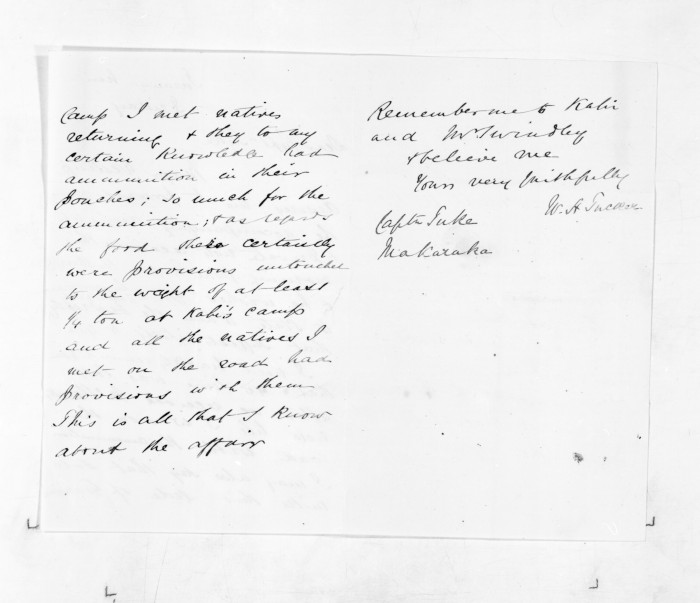 Camp I met natives
returning & they to my
certain Knowledge had
ammunition in their
pouches; so much for the
ammunition; & as regards
the food there certainly
were provisions untouched
to the weight of at least
1/4 ton at Kabi's camp
and all the natives I
met on the road had
provisions with them
This is all that I know
about the affair
Remember me to Kabi
and Mr Swindley
& believe me
Yours very faithfully
W. H. Tucker
Capt Tuke
Makaraka